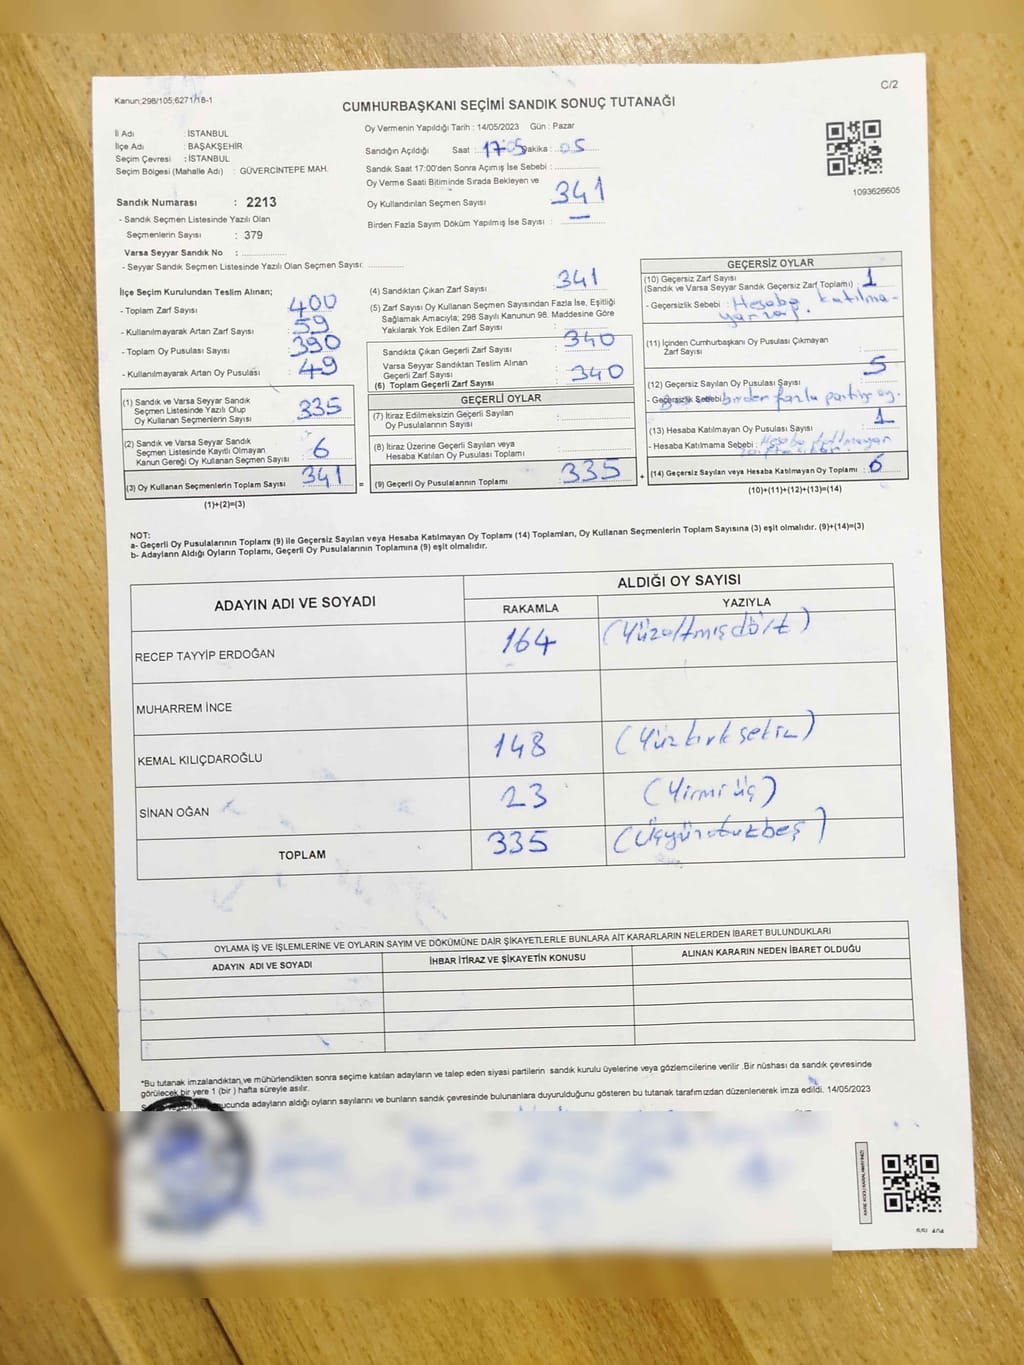 Kanun;298/105;6271/18-1
C/2
CUMHURBAŞKANI SEÇİMİ SANDIK SONUÇ TUTANAĞI
İl Adı : İSTANBUL
İlçe Adı : BAŞAKŞEHİR
Seçim Çevresi : İSTANBUL
Seçim Bölgesi (Mahalle Adı) : GÜVERCİNTEPE MAH.
Sandık Numarası : 2213
- Sandık Seçmen Listesinde Yazılı Olan
Seçmenlerin Sayısı : 379
Varsa Seyyar Sandık No :
- Seyyar Sandık Seçmen Listesinde Yazılı Olan Seçmen Sayısı:
Oy Vermenin Yapıldığı Tarih : 14/05/2023 Gün : Pazar
Sandığın Açıldığı Saat : 17:05 Dakika : 05
Sandık Saat 17:00'den Sonra Açımış İse Sebebi :
Oy Verme Saati Bitiminde Sırada Bekleyen ve
Oy Kullandırılan Seçmen Sayısı 341
Birden Fazla Sayım Döküm Yapılmış İse Sayısı : —
1093626605
İlçe Seçim Kurulundan Teslim Alınan;
- Toplam Zarf Sayısı : 400
- Kullanılmayarak Artan Zarf Sayısı : 59
- Toplam Oy Pusulası Sayısı : 390
- Kullanılmayarak Artan Oy Pusulası : 49
(1) Sandık ve Varsa Seyyar Sandık
Seçmen Listesinde Yazılı Olup
Oy Kullanan Seçmenlerin Sayısı : 335
(2) Sandık ve Varsa Seyyar Sandık
Seçmen Listesinde Kayıtlı Olmayan
Kanun Gereği Oy Kullanan Seçmen Sayısı : 6
(3) Oy Kullanan Seçmenlerin Toplam Sayısı : 341
(1)+(2)=(3)
(4) Sandıktan Çıkan Zarf Sayısı : 341
(5) Zarf Sayısı Oy Kullanan Seçmen Sayısından Fazla İse, Eşitliği
Sağlamak Amacıyla; 298 Sayılı Kanunun 98. Maddesine Göre
Yakılarak Yok Edilen Zarf Sayısı :
Sandıkta Çıkan Geçerli Zarf Sayısı : 340
Varsa Seyyar Sandıktan Teslim Alınan
Geçerli Zarf Sayısı :
(6) Toplam Geçerli Zarf Sayısı : 340
GEÇERLİ OYLAR
(7) İtiraz Edilmeksizin Geçerli Sayılan
Oy Pusulasının Sayısı :
(8) İtiraz Üzerine Geçerli Sayılan veya
Hesaba Katılan Oy Pusulası Toplamı :
(9) Geçerli Oy Pusulalarının Toplamı : 335
GEÇERSİZ OYLAR
(10) Geçersiz Zarf Sayısı
(Sandık ve Varsa Seyyar Sandık Geçersiz Zarf Toplamı) : 1
- Geçersizlik Sebebi : Hesaba katılma-
yan zarf.
(11) İçinden Cumhurbaşkanı Oy Pusulası Çıkmayan
Zarf Sayısı :
(12) Geçersiz Sayılan Oy Pusulası Sayısı : 5
- Geçersizlik Sebebi : birden fazla partiye oy.
(13) Hesaba Katılmayan Oy Pusulası Sayısı : 1
- Hesaba Katılmama Sebebi : Hesaba katılmayan
(14) Geçersiz Sayılan veya Hesaba Katılmayan Oy Toplamı : 6
(10)+(11)+(12)+(13)=(14)
NOT:
a- Geçerli Oy Pusulalarının Toplamı (9) ile Geçersiz Sayılan veya Hesaba Katılmayan Oy Toplamı (14) Toplamları, Oy Kullanan Seçmenlerin Toplam Sayısına (3) eşit olmalıdır. (9)+(14)=(3)
b- Adayların Aldığı Oyların Toplamı, Geçerli Oy Pusulalarının Toplamına (9) eşit olmalıdır.
ADAYIN ADI VE SOYADI ALDIĞI OY SAYISI
RAKAMLA YAZIYLA
RECEP TAYYİP ERDOĞAN 164 (Yüzaltmışdört)
MUHARREM İNCE
KEMAL KILIÇDAROĞLU 148 (Yüzkırksekiz)
SİNAN OĞAN 23 (Yirmiüç)
TOPLAM 335 (Üçyüzotuzbeş)
OYLAMA İŞ VE İŞLEMLERİNE VE OYLARIN SAYIM VE DÖKÜMÜNE DAİR ŞİKAYETLERLE BUNLARA AİT KARARLARIN NELERDEN İBARET BULUNDUKLARI
ADAYIN ADI VE SOYADI İHBAR İTİRAZ VE ŞİKAYETİN KONUSU ALINAN KARARIN NEDEN İBARET OLDUĞU
*Bu tutanak imzalandıktan,ve mühürlendikten sonra seçime katılan adayların ve talep eden siyasi partilerin sandık kurulu üyelerine veya gözlemcilerine verilir .Bir nüshası da sandık çevresinde
görülecek bir yere 1 (bir ) hafta süreyle asılır.
ucunda adayların aldığı oyların sayılarını ve bunların sandık çevresinde bulunanlara duyurulduğunu gösteren bu tutanak tarafımızdan düzenlenerek imza edildi. 14/05/2023